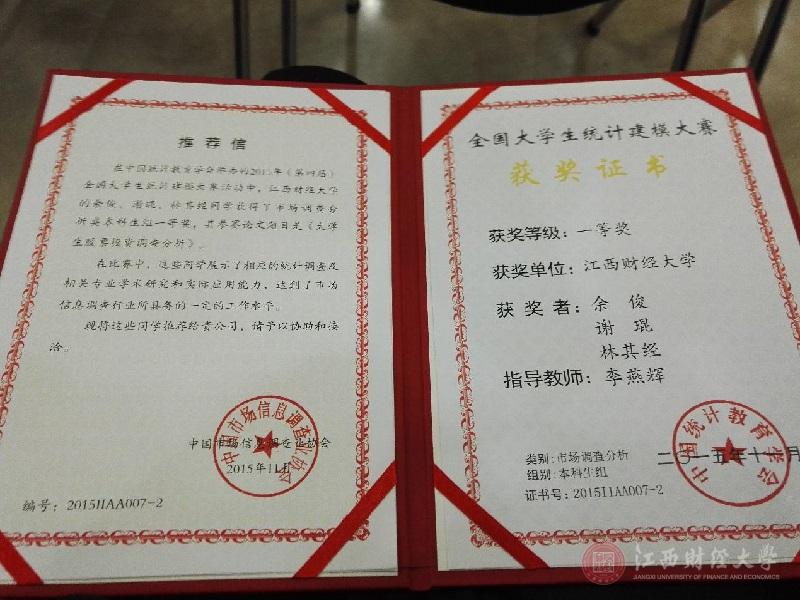 推荐信
在中国统计教育学会举办的2015年（第四届）
全国大学生统计建模大赛活动中，江西财经大学
的余俊、谢琨、林其经同学获得了市场调查分
析类本科生组一等奖，其参赛论文题目是《大学
生股票投资调查分析》。
在比赛中，这些同学展示了相应的统计调查及
相关专业学术研究和实际应用能力，达到了市场
信息调查行业所具备的一定的工作水平。
现将这些同学推荐给贵公司，请予以协助和接
洽。
中国市场信息调查业协会
2015年11月
编号：2015IIAA007-2
中国市场信息调查业协会
全国大学生统计建模大赛
获奖证书
获奖等级：一等奖
获奖单位：江西财经大学
获奖者：余俊
谢琨
林其经
指导教师：李燕辉
类别：市场调查分析
组别：本科生组
证书号：2015IIAA007-2
二〇一五年十一月
中国统计教育学会
江西财经大学
JIANGXI UNIVERSITY OF FINANCE AND ECONOMICS